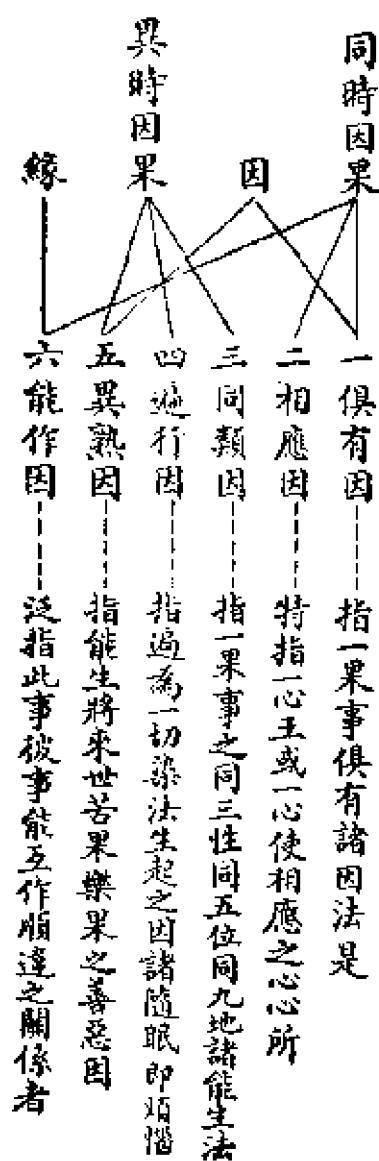 同時因果
因
異時因果
緣
一俱有因------指一果事俱有諸因法是
二相應因------特指一心王或一心使相應之心心所
三同類因------指一果事之同三性同五位同九地諸能生法
四遍行因------指遍為一切染法生起之因諸隨眠即煩惱
五異熟因------指能生將來世苦果樂果之善惡因
六能作因------泛指此事彼事能互作順違之關係者